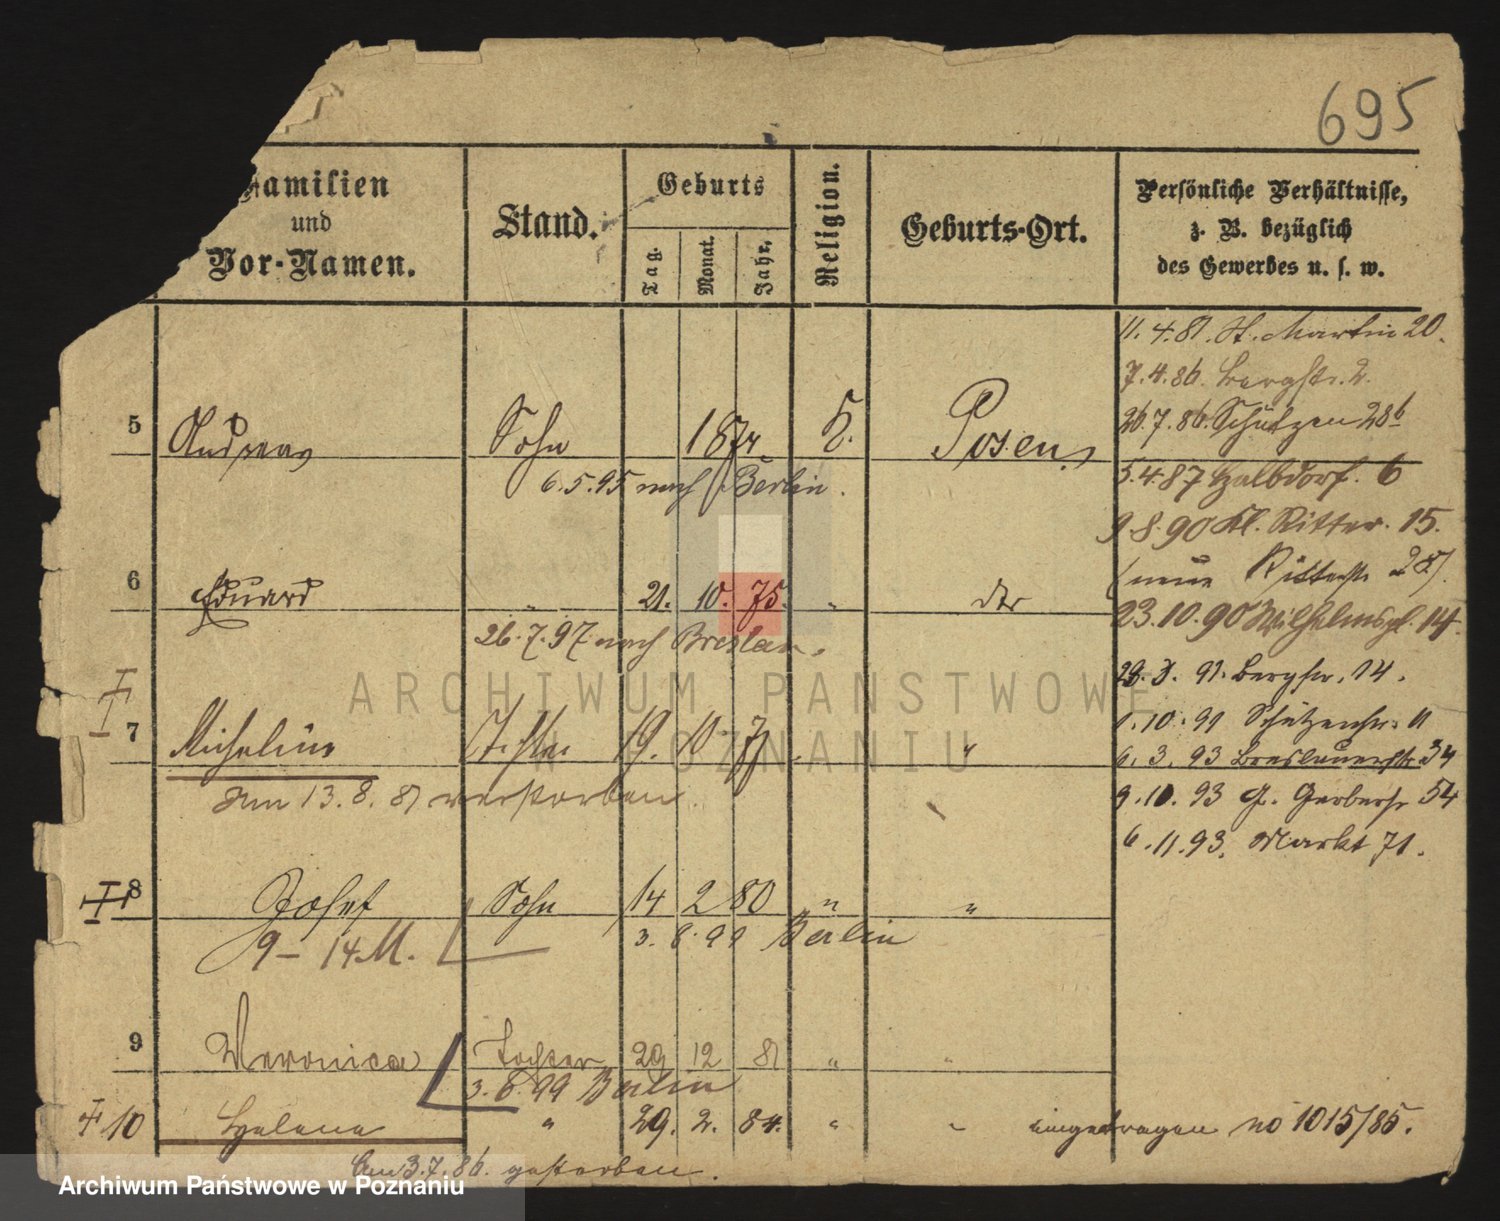 695
Familien
und
Vor-Namen.
Stand.
Geburts
Tag.
Monat.
Jahr.
Religion.
Geburts-Ort.
Persönliche Verhältnisse,
z. B. bezüglich
des Gewerbes u. s. w.
11. 4. 81. St. Martin 20.
7. 4. 86. Bergstr. 2.
26. 7. 86. Schützen 28b
5 Andreas Sohn 1874 k. Posen
6. 5. 95 nach Berlin.
5. 4. 87 Halbdorf. 6
9. 8. 90 Kl. Ritter. 15.
(neue Ritterstr 28).
6 Eduard " 21. 10. 75. " "
26. 7. 97 nach Breslau.
23. 10. 90 Wilhelmspl. 14.
23. 3. 91. Bergstr. 14.
1. 10. 91 Schützenstr. 11
7 Micheline Tochter 19. 10 77 "
6. 3. 93 Breslauerstr. 34
am 13. 8. 81 verstorben.
9. 10. 93 G. Gerberstr 54
6. 11. 93. Markt 71.
8 Josef Sohn 14 2 80 " "
9 – 14 M. 3. 8. 99 Berlin
9 Veronica Tochter 29 12 81 " "
3. 8. 99 Berlin
10 Helena " 29. 2. 84. " " eingetragen no 1015/85.
am 3. 7. 86. gestorben.
ARCHIWUM PAŃSTWOWE
W POZNANIU
Archiwum Państwowe w Poznaniu